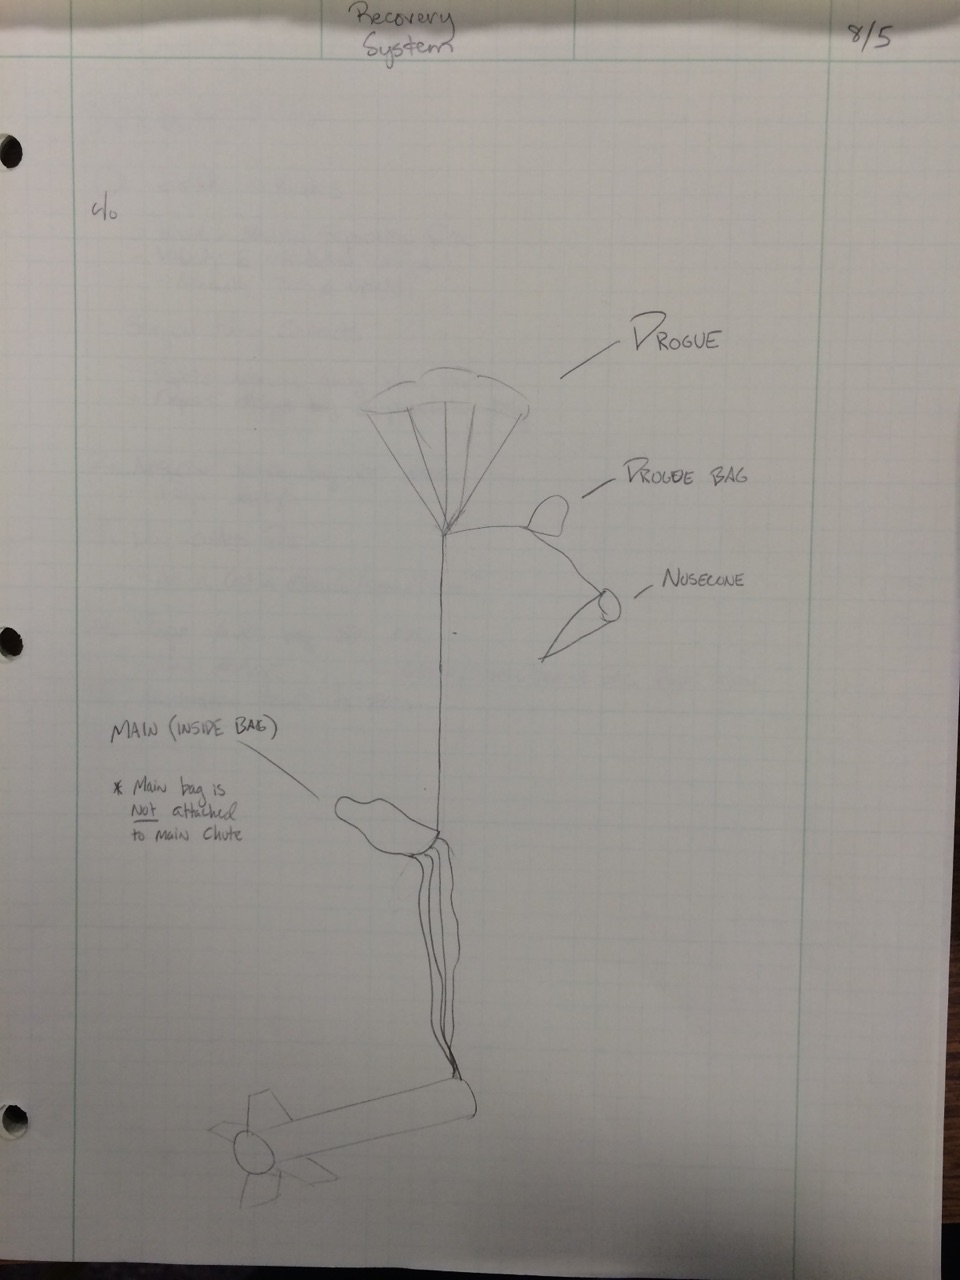 Recovery
System
8/5
c/o
DROGUE
DROGUE BAG
NOSECONE
MAIN (INSIDE BAG)
* Main bag is
Not attached
to main chute